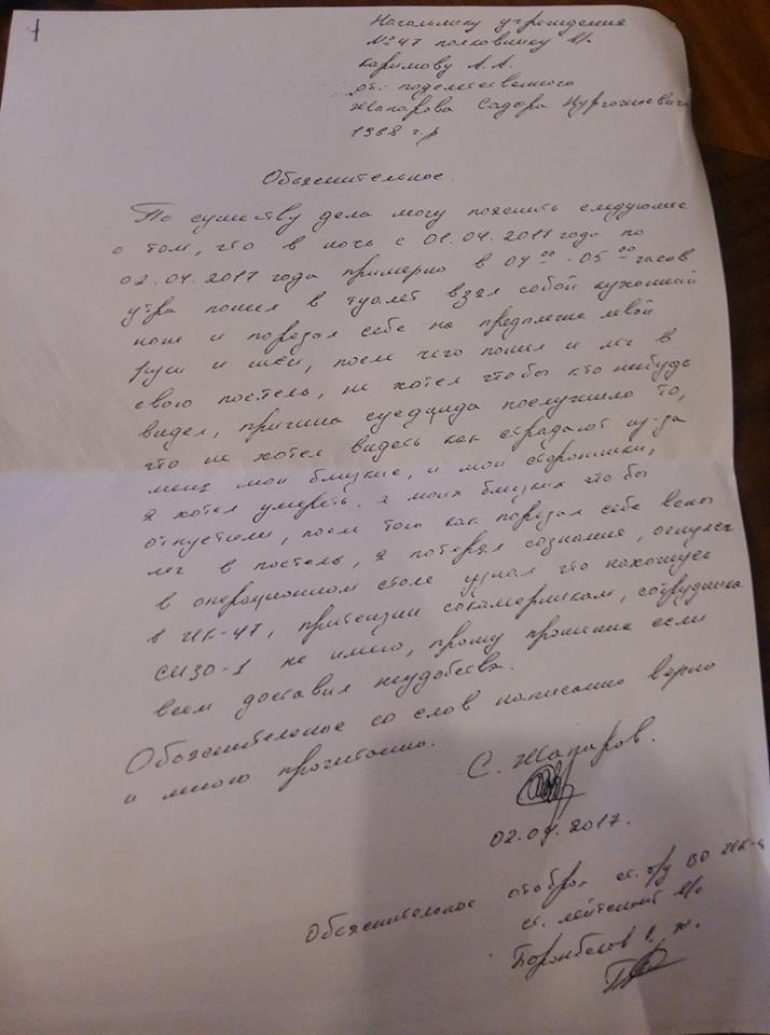 1
Начальнику учреждения
№47 полковнику в/с
Каримову А.А.
от: подследственного
Жапарова Садыра Нургожоевича
1968 г.р
Объяснительное.
По существу дела могу пояснить следующие
о том, что в ночь с 01.04.2017 года по
02.04.2017 года примерно в 04⁰⁰-05⁰⁰ часов
утра пошел в туалет взял собой кухонный
нож и порезал себе на предплечие левой
руки и шеи, после чего пошел и лег в
свою постель, не хотел чтобы кто нибудь
видел, причина суедцида послужило то,
что не хотел видеть как страдают из-за
меня мои близкие, и мои сторонники,
я хотел умереть. а моих близких что бы
отпустили, после того как порезал себе вены
лег в постель, я потерял сознание, очнулся
в операционном столе узнал что нахожусь
в ИК-47, притензии сокамерникам, сотрудника
СИЗО-1 не имею, прошу прощения если
всем доставил неудобства.
Объяснительное со слов написанно верно
и мною прочитанно.
С. Жапаров.
02.04.2017.
Объяснительное отобрал ст. о/у ВО ИК-4
ст. лейтенант в/с